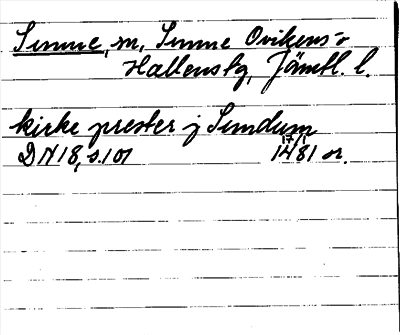 Sunne, m, Sunne Ovikens o
Hallens tg, Jämtl. l.
kirke prester j Sundum
DN 18, s. 101 17/1 1481 or.